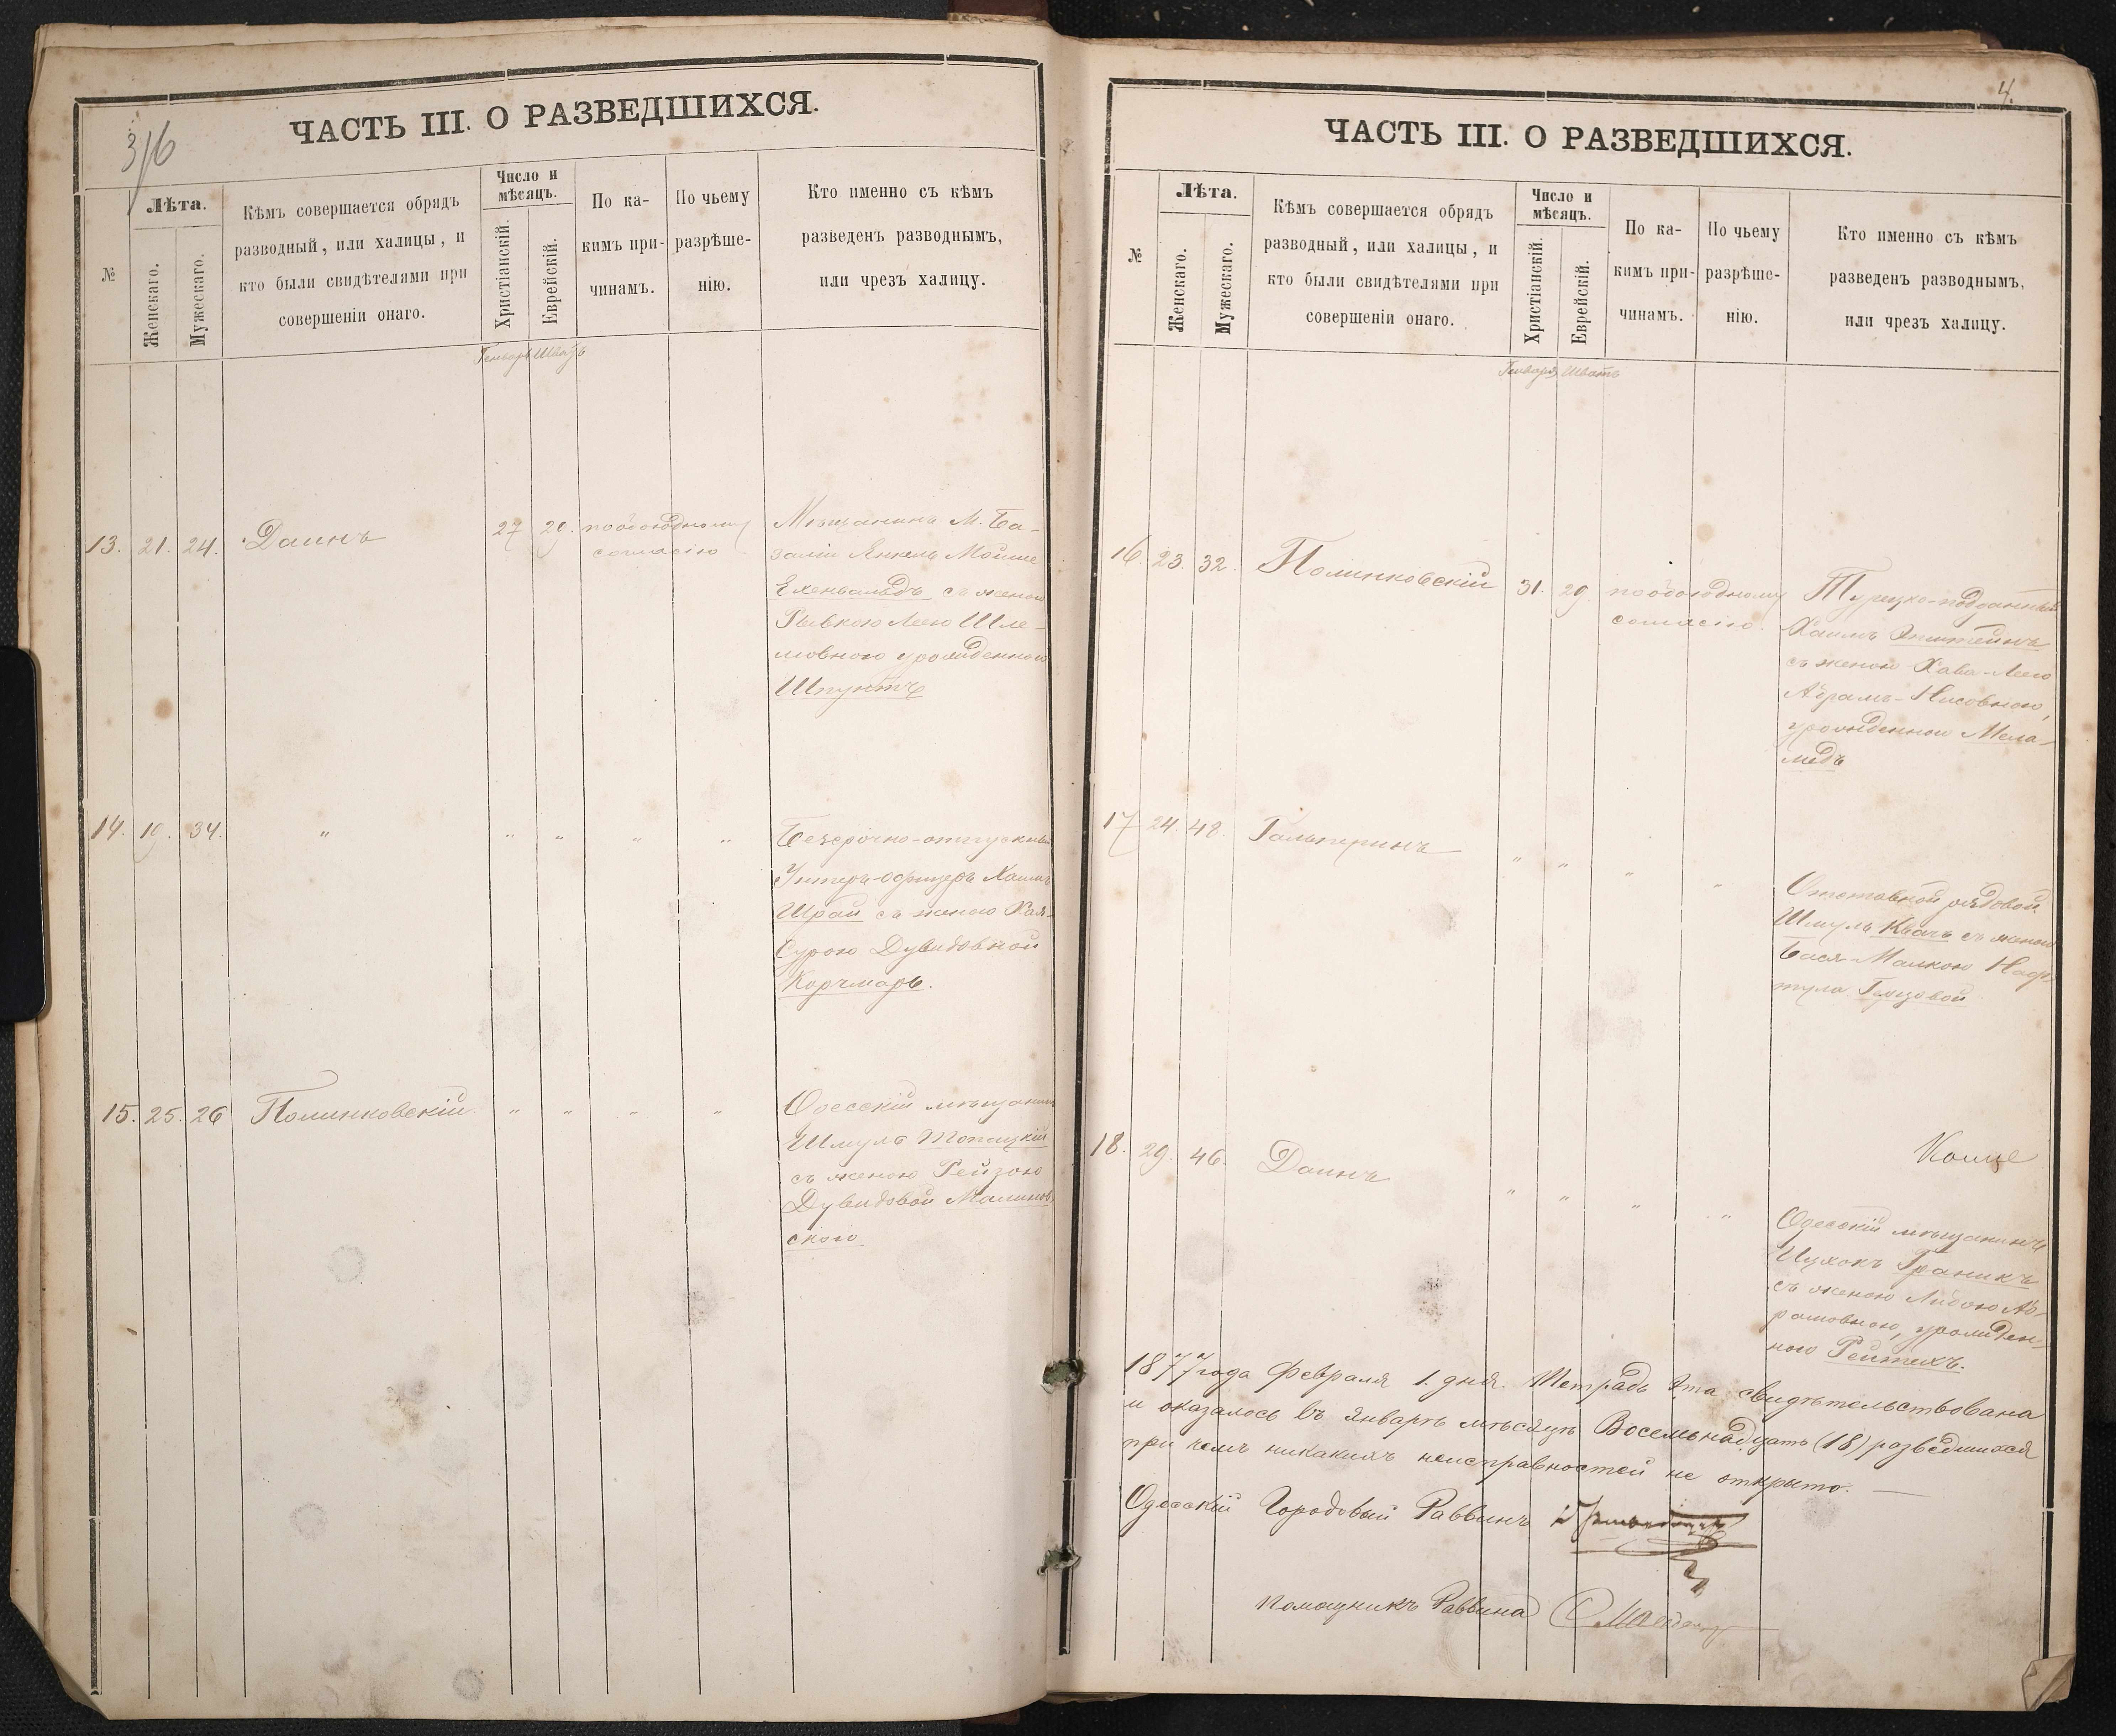 ЧАСТЬ III. О РАЗВЕДШИХСЯ.
3/6
№
Лѣта.
Женскаго.
Мужескаго.
Кѣмъ совершается обрядъ
разводный, или халицы, и
кто были свидѣтелями при
совершеніи онаго.
Число и
мѣсяцъ.
Христіанскій.
Еврейскій.
По ка-
кимъ при-
чинамъ.
По чьему
разрѣше-
нію.
Кто именно съ кѣмъ
разведенъ разводнымъ,
или чрезъ халицу.
Генварь Шватъ
13. 21. 24. Даинъ 27 29. по обоюдному
согласію
Мѣщанинъ М. Ба-
заліи Янкель Мойше
Ехенвальдъ съ женою
Рывкою Леею Шле-
мовною урожденною
Шпунтъ
14. 19. 34. " " " " "
Безсрочно-отпускный
Унтеръ-офицеръ Хаимъ
Шрай съ женою Хая-
Сурою Дувидовной
Корчмарь.
15. 25. 26 Полинковскій " " " "
Одесскій мѣщанинъ
Шмуль Топацкій
съ женою Рейзою
Дувидовой Малинов-
ского
4.
ЧАСТЬ III. О РАЗВЕДШИХСЯ.
№
Лѣта.
Женскаго.
Мужескаго.
Кѣмъ совершается обрядъ
разводный, или халицы, и
кто были свидѣтелями при
совершеніи онаго.
Число и
мѣсяцъ.
Христіанскій.
Еврейскій.
По ка-
кимъ при-
чинамъ.
По чьему
разрѣше-
нію.
Кто именно съ кѣмъ
разведенъ разводнымъ,
или чрезъ халицу.
Генваря Шватъ
16. 23. 32. Полинковскій 31. 29. по обоюдному
согласію.
Турецко-подданный
Хаимъ Эпштейнъ
съ женою Хава-Леею
Абрамъ-Нисовною,
урожденной Мела-
медъ
17 24. 48. Гальперинъ " " " "
Отставной рядовой
Шмуль Квачъ съ женою
Бася-Малкою Наф-
тула Герцовой
18. 29. 46. Даинъ " " " "
Одесский мѣщанинъ
Ицхокъ Граникъ
съ женою Либою Аб-
рамовною, урожден-
ною Рейтехъ.
1877 года Февраля 1. дня. Тетрадь эта свидѣтельствована
и оказалось въ Январѣ мѣсяцѣ Восемьнадцать (18) разведшихся
при чемъ никакихъ неисправностей не открыто. —
Одесскій Городовой Раввинъ
Помощникъ Раввина